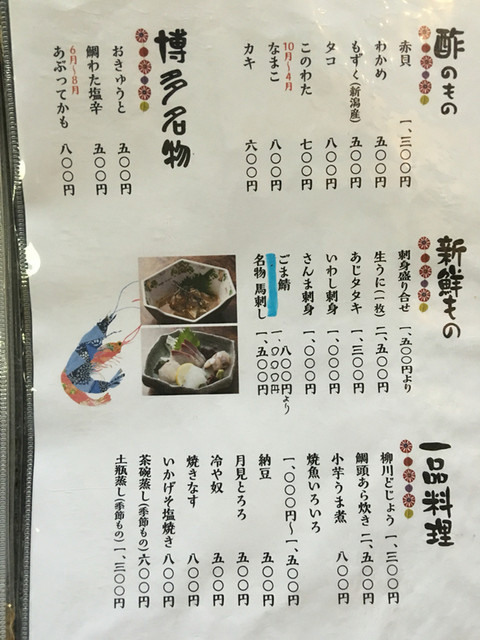 酢のもの
赤貝 一、三〇〇円
わかめ 五〇〇円
もずく(新潟産) 五〇〇円
タコ 八〇〇円
このわた 七〇〇円
10月〜4月
なまこ 八〇〇円
カキ 六〇〇円
博多名物
おきゅうと 五〇〇円
鯛わた塩辛 五〇〇円
6月〜8月
あぶってかも 八〇〇円
新鮮もの
刺身盛り合せ 一、五〇〇円より
生うに(一枚) 二、五〇〇円
あじタタキ 一、三〇〇円
いわし刺身 一、〇〇〇円
さんま刺身 一、〇〇〇円
ごま鯖 八〇〇円より
一、〇〇〇円
名物 馬刺し 一、五〇〇円
一品料理
柳川どじょう 一、三〇〇円
鯛頭あら炊き 二、五〇〇円
小芋うま煮 八〇〇円
焼魚いろいろ
一、〇〇〇円〜一、五〇〇円
納豆 五〇〇円
月見とろろ 五〇〇円
冷や奴 五〇〇円
焼きなす 八〇〇円
いかげそ塩焼き 八〇〇円
茶碗蒸し(季節もの) 六〇〇円
土瓶蒸し(季節もの) 一、三〇〇円